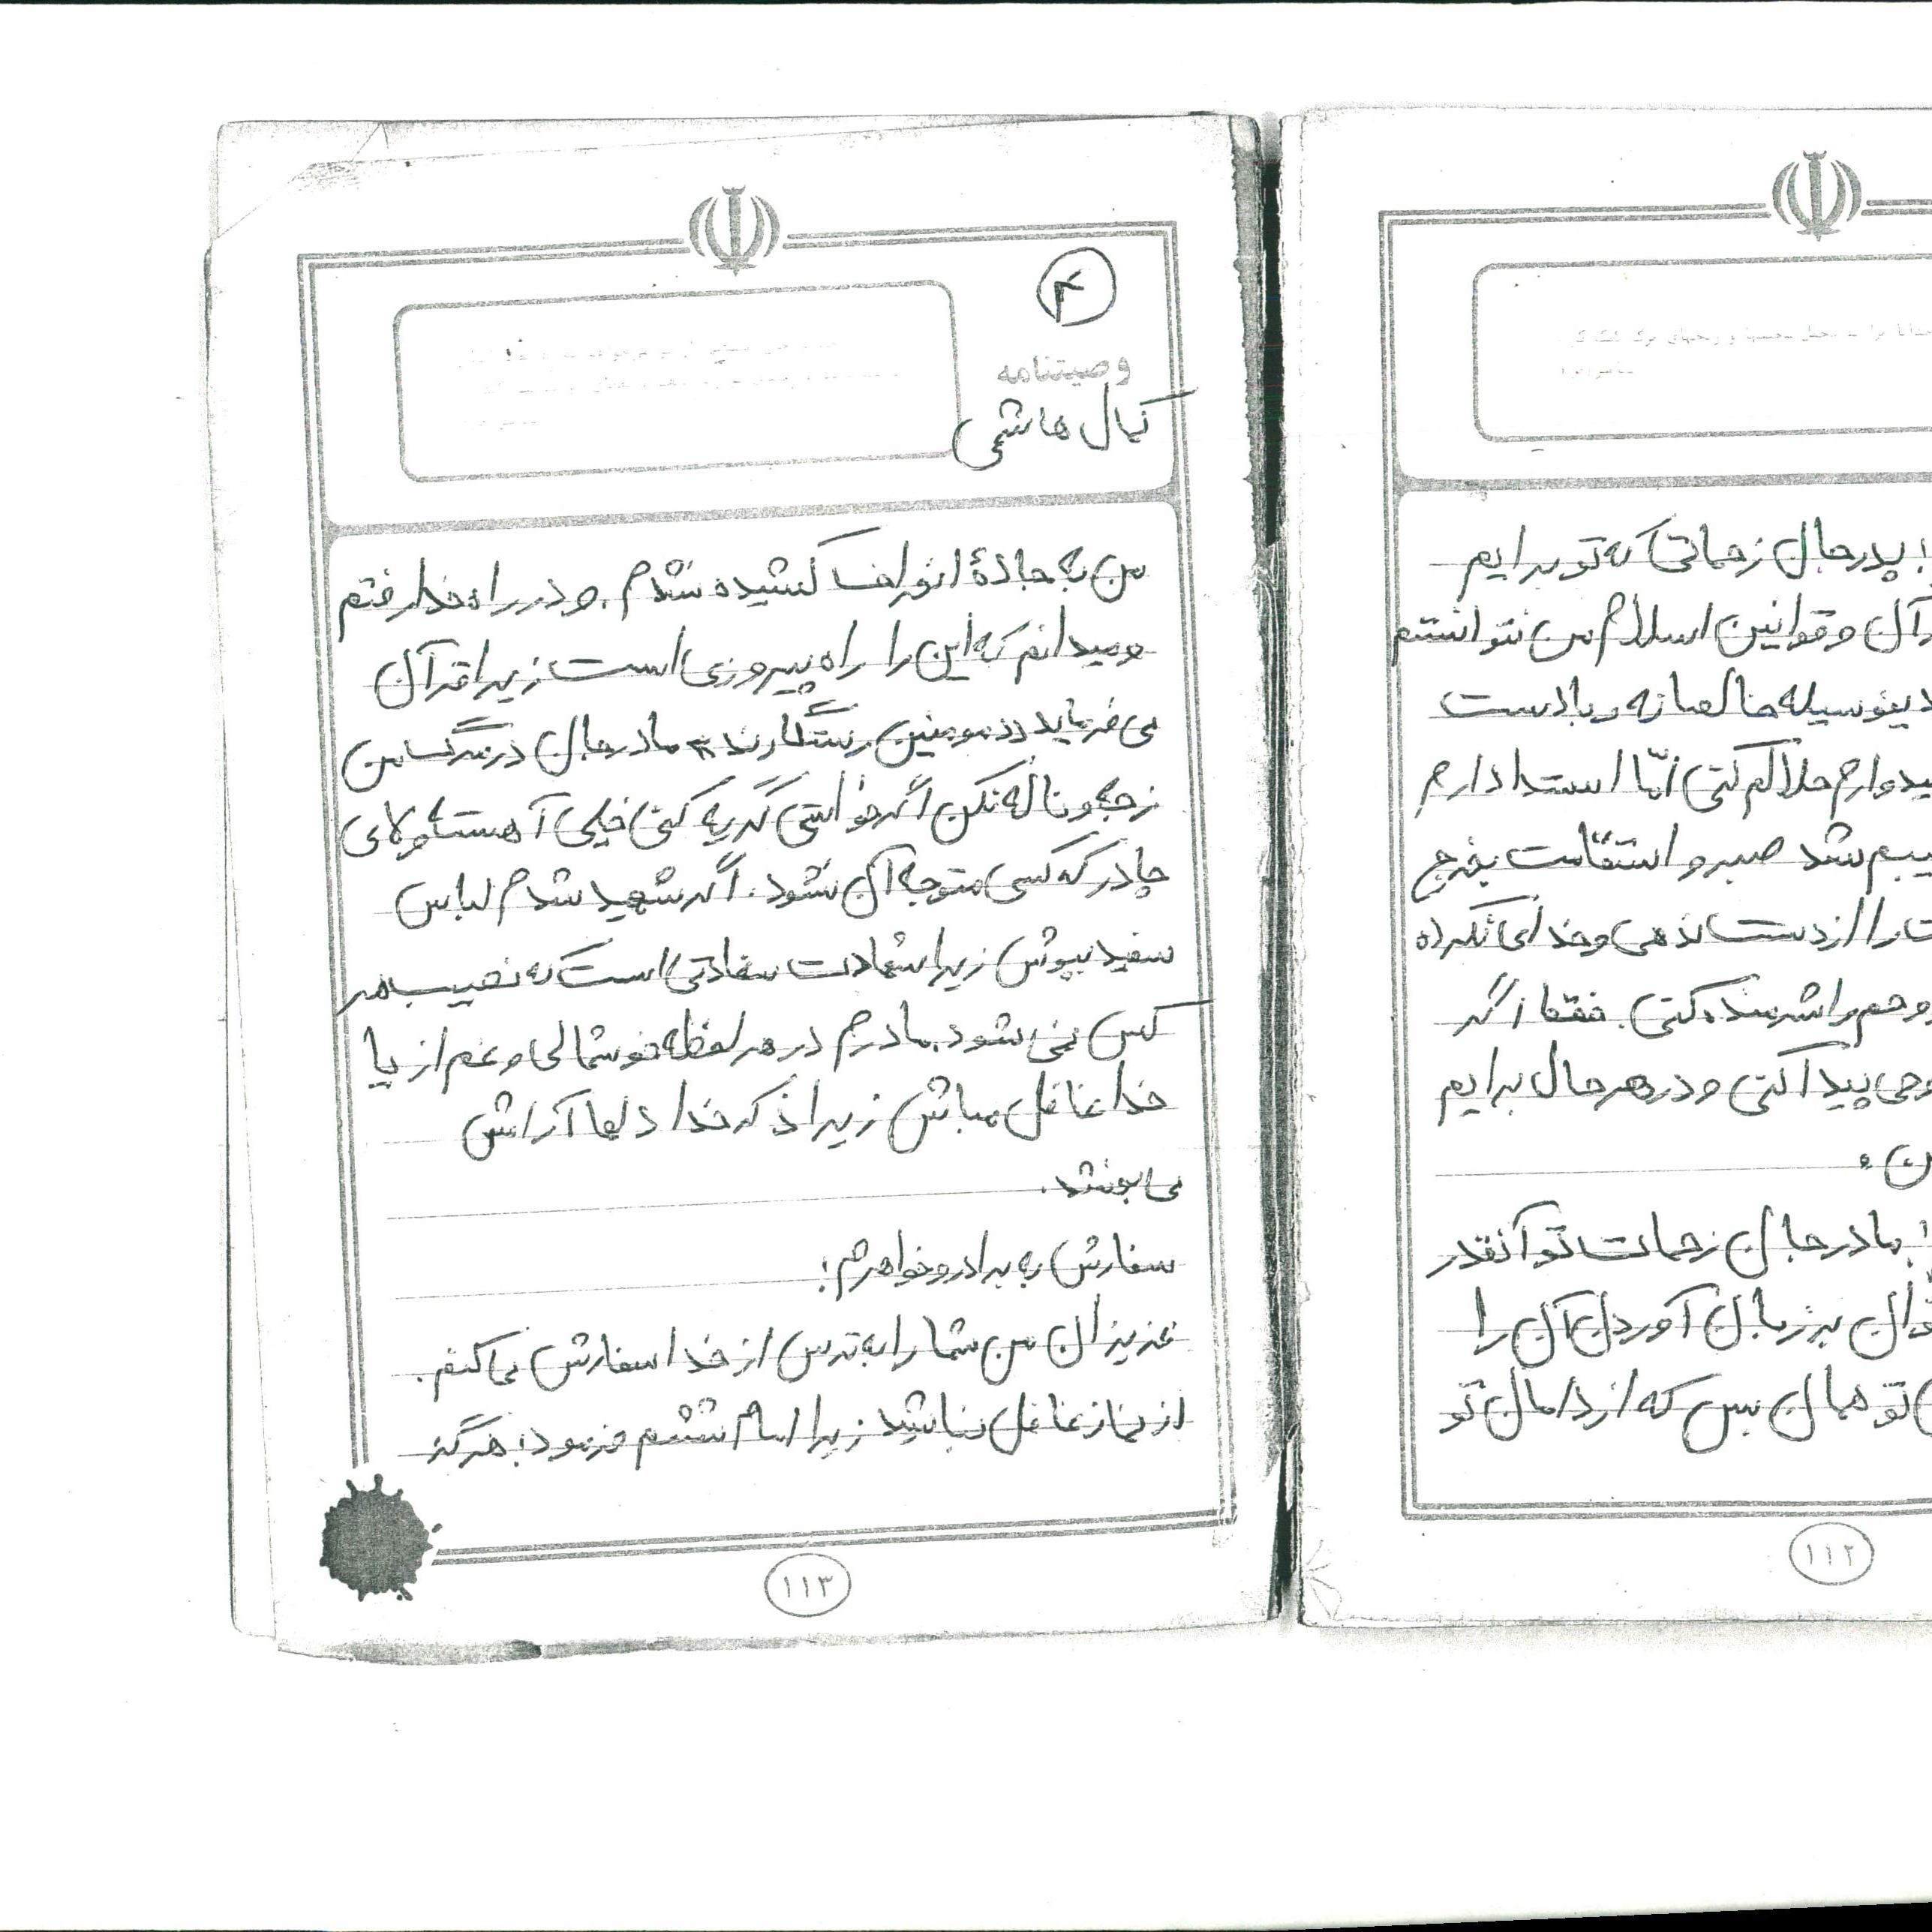 بپدر جان زحماتی که تو برایم
آن و قوانین اسلام من نتوانستم
دینوسیله خالصانه و با دست
یدوارم حلالم کنی امّا استدا دارم
یبم شد صبر و استقامت بخرج
ت را از دست ندهی و خدای نکرده
وحم را شرمنده کنی. فقط اگر
وحی پیدا کنی و در هر حال برایم
ن.
مادر جان زحمات تو آنقدر
وان بر زبان آوردن آن را
تو همان بس که از دامان تو
۱۱۲
۴
وصیتنامه
کمال هاشمی
من به جادهٔ انحراف کشیده نشدم. و در راه خدا رفتم
و میدانم که این را راه پیروزی است زیرا قرآن
می فرماید «مومنین رستگارند» مادر جان در مرگ من
زجه و ناله نکن اگر خواستی گریه کنی خیلی آهسته و لای
چادر که کسی متوجه آن نشود. اگر شهید شدم لباس
سفید بپوش زیرا شهادت سعادتی است که نصیب هر
کس نمی شود. مادرم در هر لحظه خوشحالی و غم از یا
خدا غافل مباش زیرا ذکر خدا دلها آرامش
می بخشد.
سفارش به برادر و خواهرم:
عزیزان من شما را به ترس از خدا سفارش می کنم.
از نماز غافل نباشید زیرا امام ششم فرمود: هرگز
۱۱۳